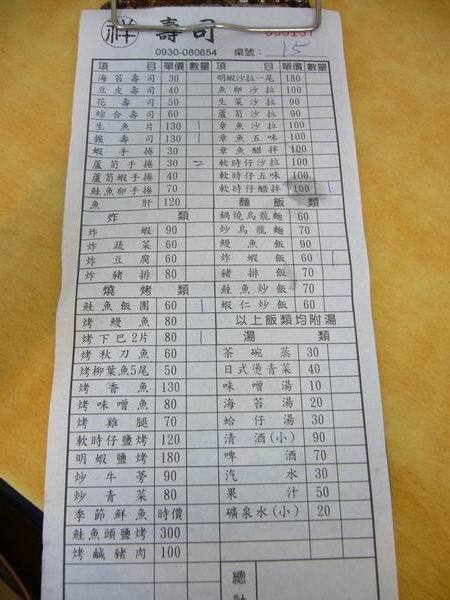 祥 壽司
0930-080654 桌號: 15
項目 單價 數量
海苔壽司 30
豆皮壽司 40
花壽司 50
綜合壽司 60
生魚片 130 1
握壽司 130 1
蝦手捲 30
蘆筍手捲 30 二
蘆筍蝦手捲 40
鮭魚卵手捲 70
魚肝 120
炸類
炸蝦 90
炸蔬菜 60
炸豆腐 60
炸豬排 80
燒烤類
鮭魚飯團 60 1
烤鰻魚 80
烤下巴2片 80 1
烤秋刀魚 60
烤柳葉魚5尾 50
烤香魚 130
烤味噌魚 80
烤雞腿 70
軟時仔鹽烤 120
明蝦鹽烤 180
炒牛蒡 90
炒青菜 80
季節鮮魚 時價
鮭魚頭鹽烤 300
烤鹹豬肉 100
項目 單價 數量
明蝦沙拉一尾 180
魚卵沙拉 100
生菜沙拉 90
蘆筍沙拉 90
章魚沙拉 100
章魚五味 100
章魚醋拌 100
軟時仔沙拉 100
軟時仔五味 100
軟時仔醋拌 100 1
麵飯類
鍋燒烏龍麵 60
炒烏龍麵 70
鰻魚飯 90
炸蝦飯 60 1
豬排飯 70
鮭魚炒飯 70
蝦仁炒飯 60
以上飯類均附湯
湯類
茶碗蒸 30
日式燙青菜 40
味噌湯 10
海苔湯 20
蛤仔湯 30
清酒(小) 90
啤酒 70
汽水 30
果汁 50
礦泉水(小) 20
總計